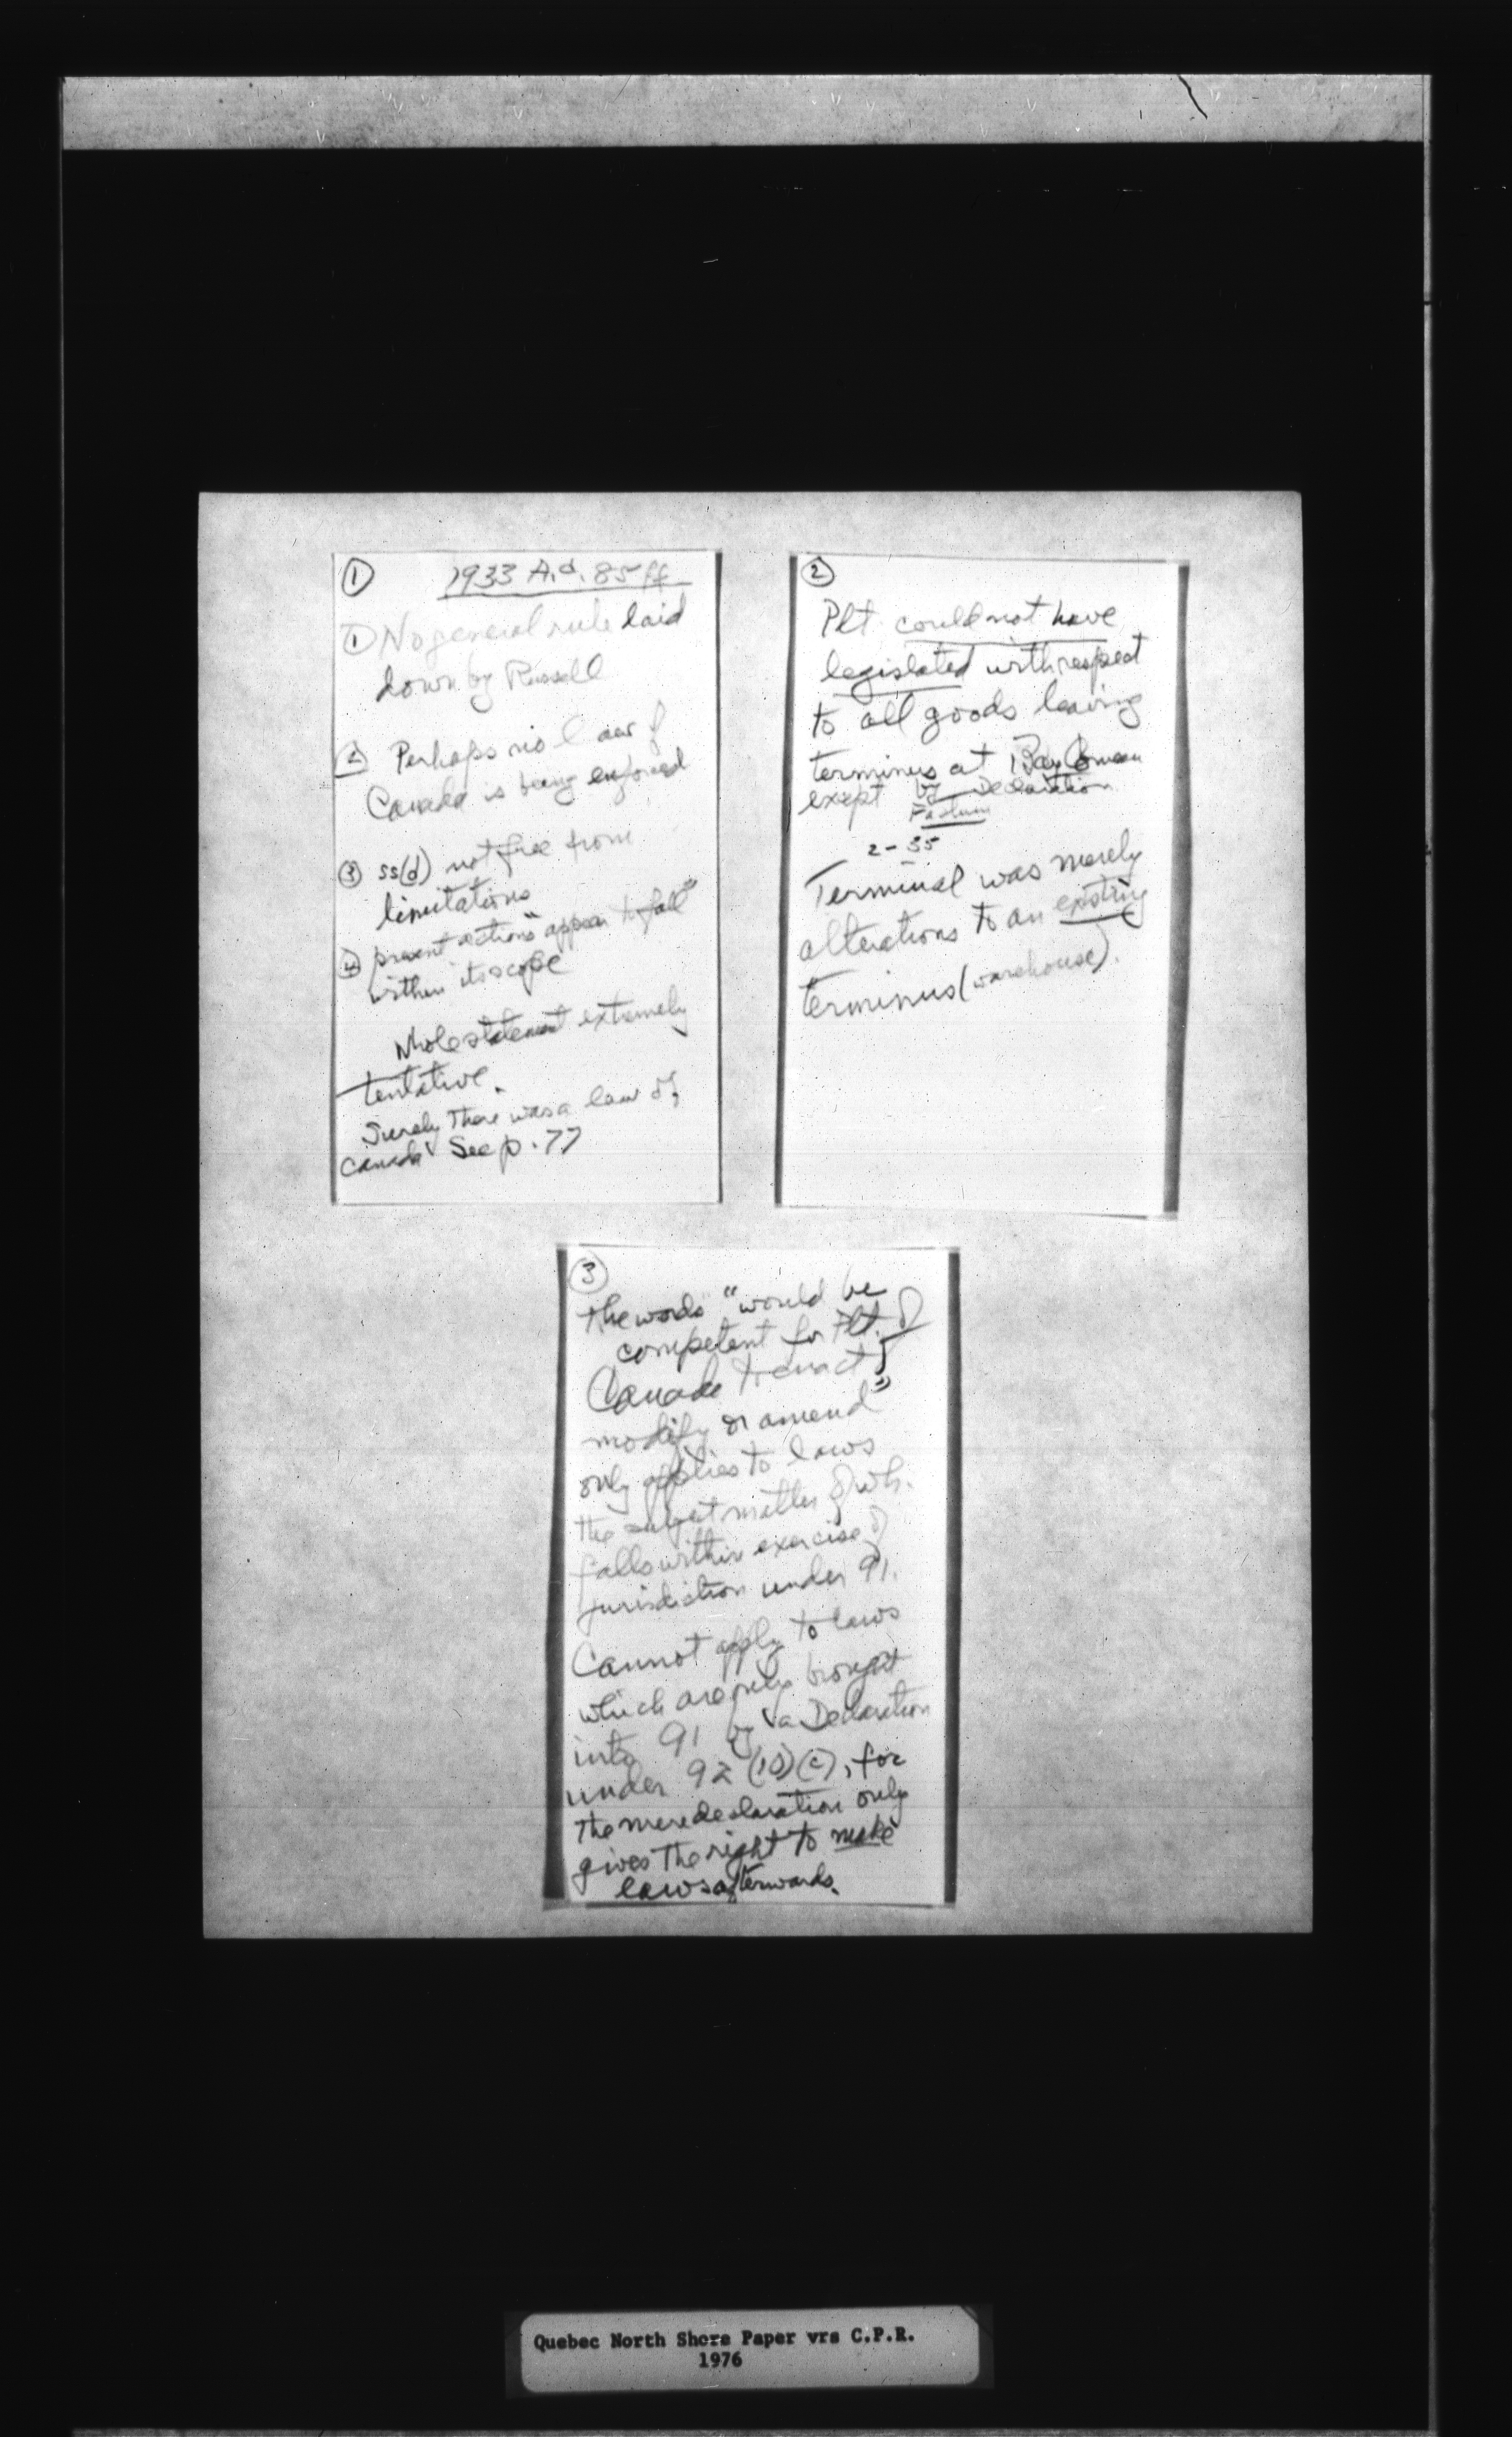 ①
1933 A.C. 85 ff
① No general rule laid
down by Russell
② Perhaps no law of
Canada is being enforced
③ ss(d) not free from
limitations
④ present actions "appear to fall"
within its scope
Whole statement extremely
tentative.
Surely there was a law of
Canada See p. 77
②
Plt could not have
legislated with respect
to all goods leaving
terminus at Bay Comeau
except by Declaration
Factum
2-35
Terminal was merely
alterations to an existing
terminus (warehouse).
③
The words "would be
competent for Plt. of
Canada to enact,
modify or amend"
only applies to laws
the subject matter of wh.
falls within exercise of
jurisdiction under 91.
Cannot apply to laws
which are only brought
into 91 by a Declaration
under 92 (10)(c), for
the mere declaration only
gives the right to make
laws afterwards.
Quebec North Shore Paper vrs C.P.R.
1976